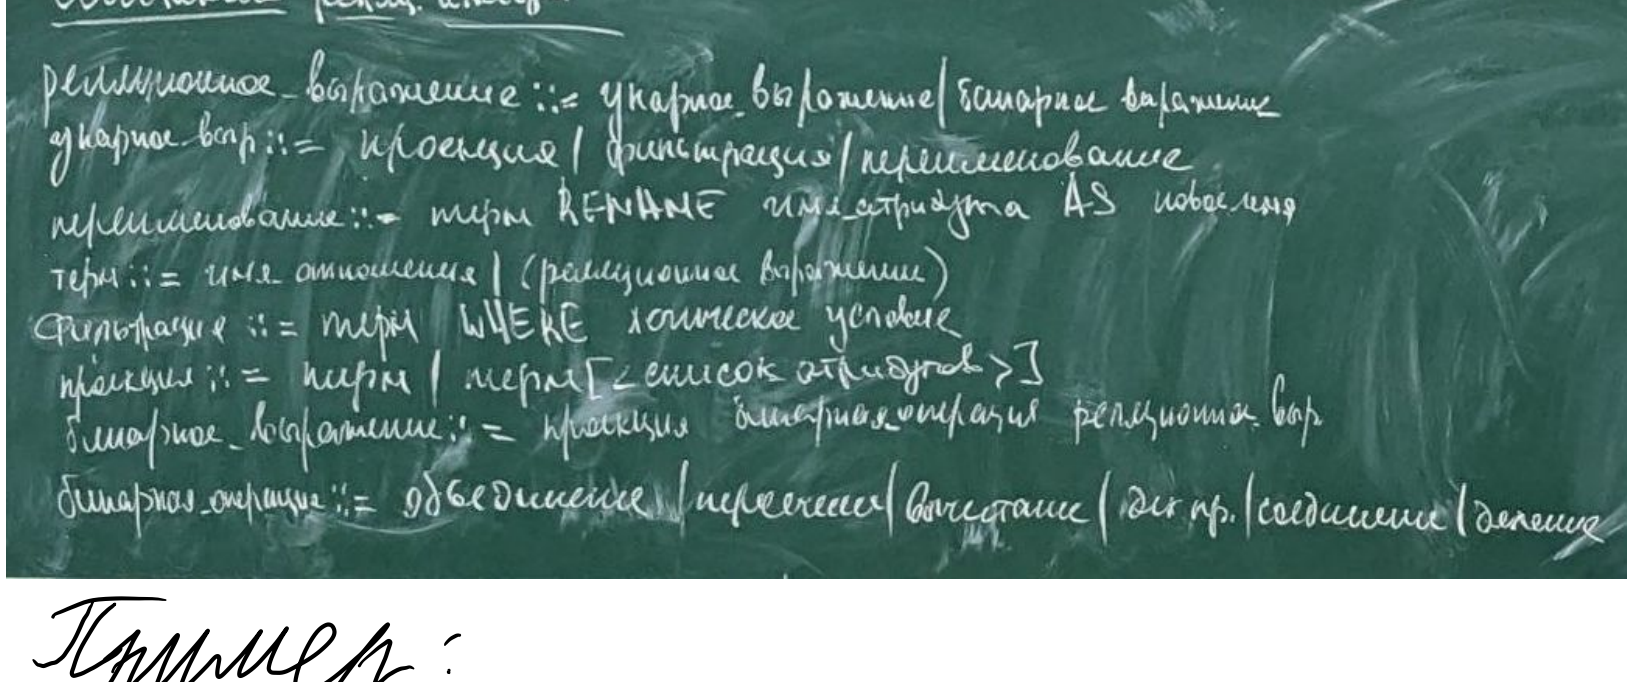 реляц. алгебр
реляционное_выражение ::= унарное_выражение | бинарное выражение
унарное_выр ::= проекция | фильтрация | переименование
переименование ::= терм RENAME имя_атрибута AS новое имя
терм ::= имя_отношения | (реляционное выражение)
Фильтрация ::= терм WHERE логическое условие
проекция ::= терм | терм [<список атрибутов>]
бинарное_выражение ::= проекция бинарная_операция реляционное_выр
бинарная_операция ::= объединение | пересечение | вычитание | дек пр. | соединение | деление
Пример: